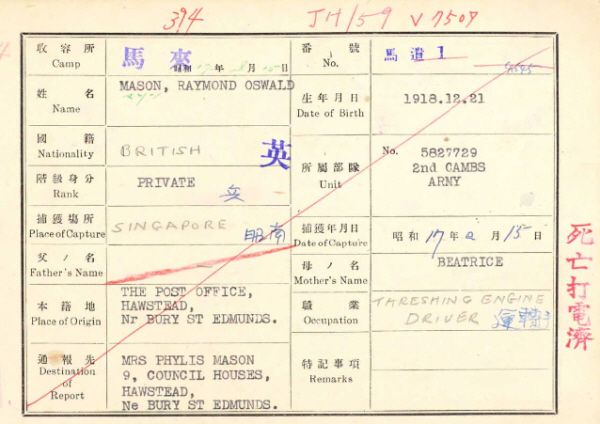 394
JH/59 V 7507
收容所
Camp
馬來
昭和 17年 8月 15日
番號
No.
馬 1
姓名
Name
MASON, RAYMOND OSWALD
生年月日
Date of Birth
1918.12.21
國籍
Nationality
BRITISH
英
所屬部隊
Unit
No. 5827729
2nd CAMBS
ARMY
階級身分
Rank
PRIVATE
兵
捕獲場所
Place of Capture
SINGAPORE
昭南
捕獲年月日
Date of Capture
昭和 17年 2月 15日
父ノ名
Father's Name
母ノ名
Mother's Name
BEATRICE
本籍地
Place of Origin
THE POST OFFICE,
HAWSTEAD,
Nr BURY ST EDMUNDS.
職業
Occupation
THRESHING ENGINE
DRIVER
通報先
Destination
of
Report
MRS PHYLIS MASON
9, COUNCIL HOUSES,
HAWSTEAD,
Ne BURY ST EDMUNDS.
特記事項
Remarks
死亡打電濟